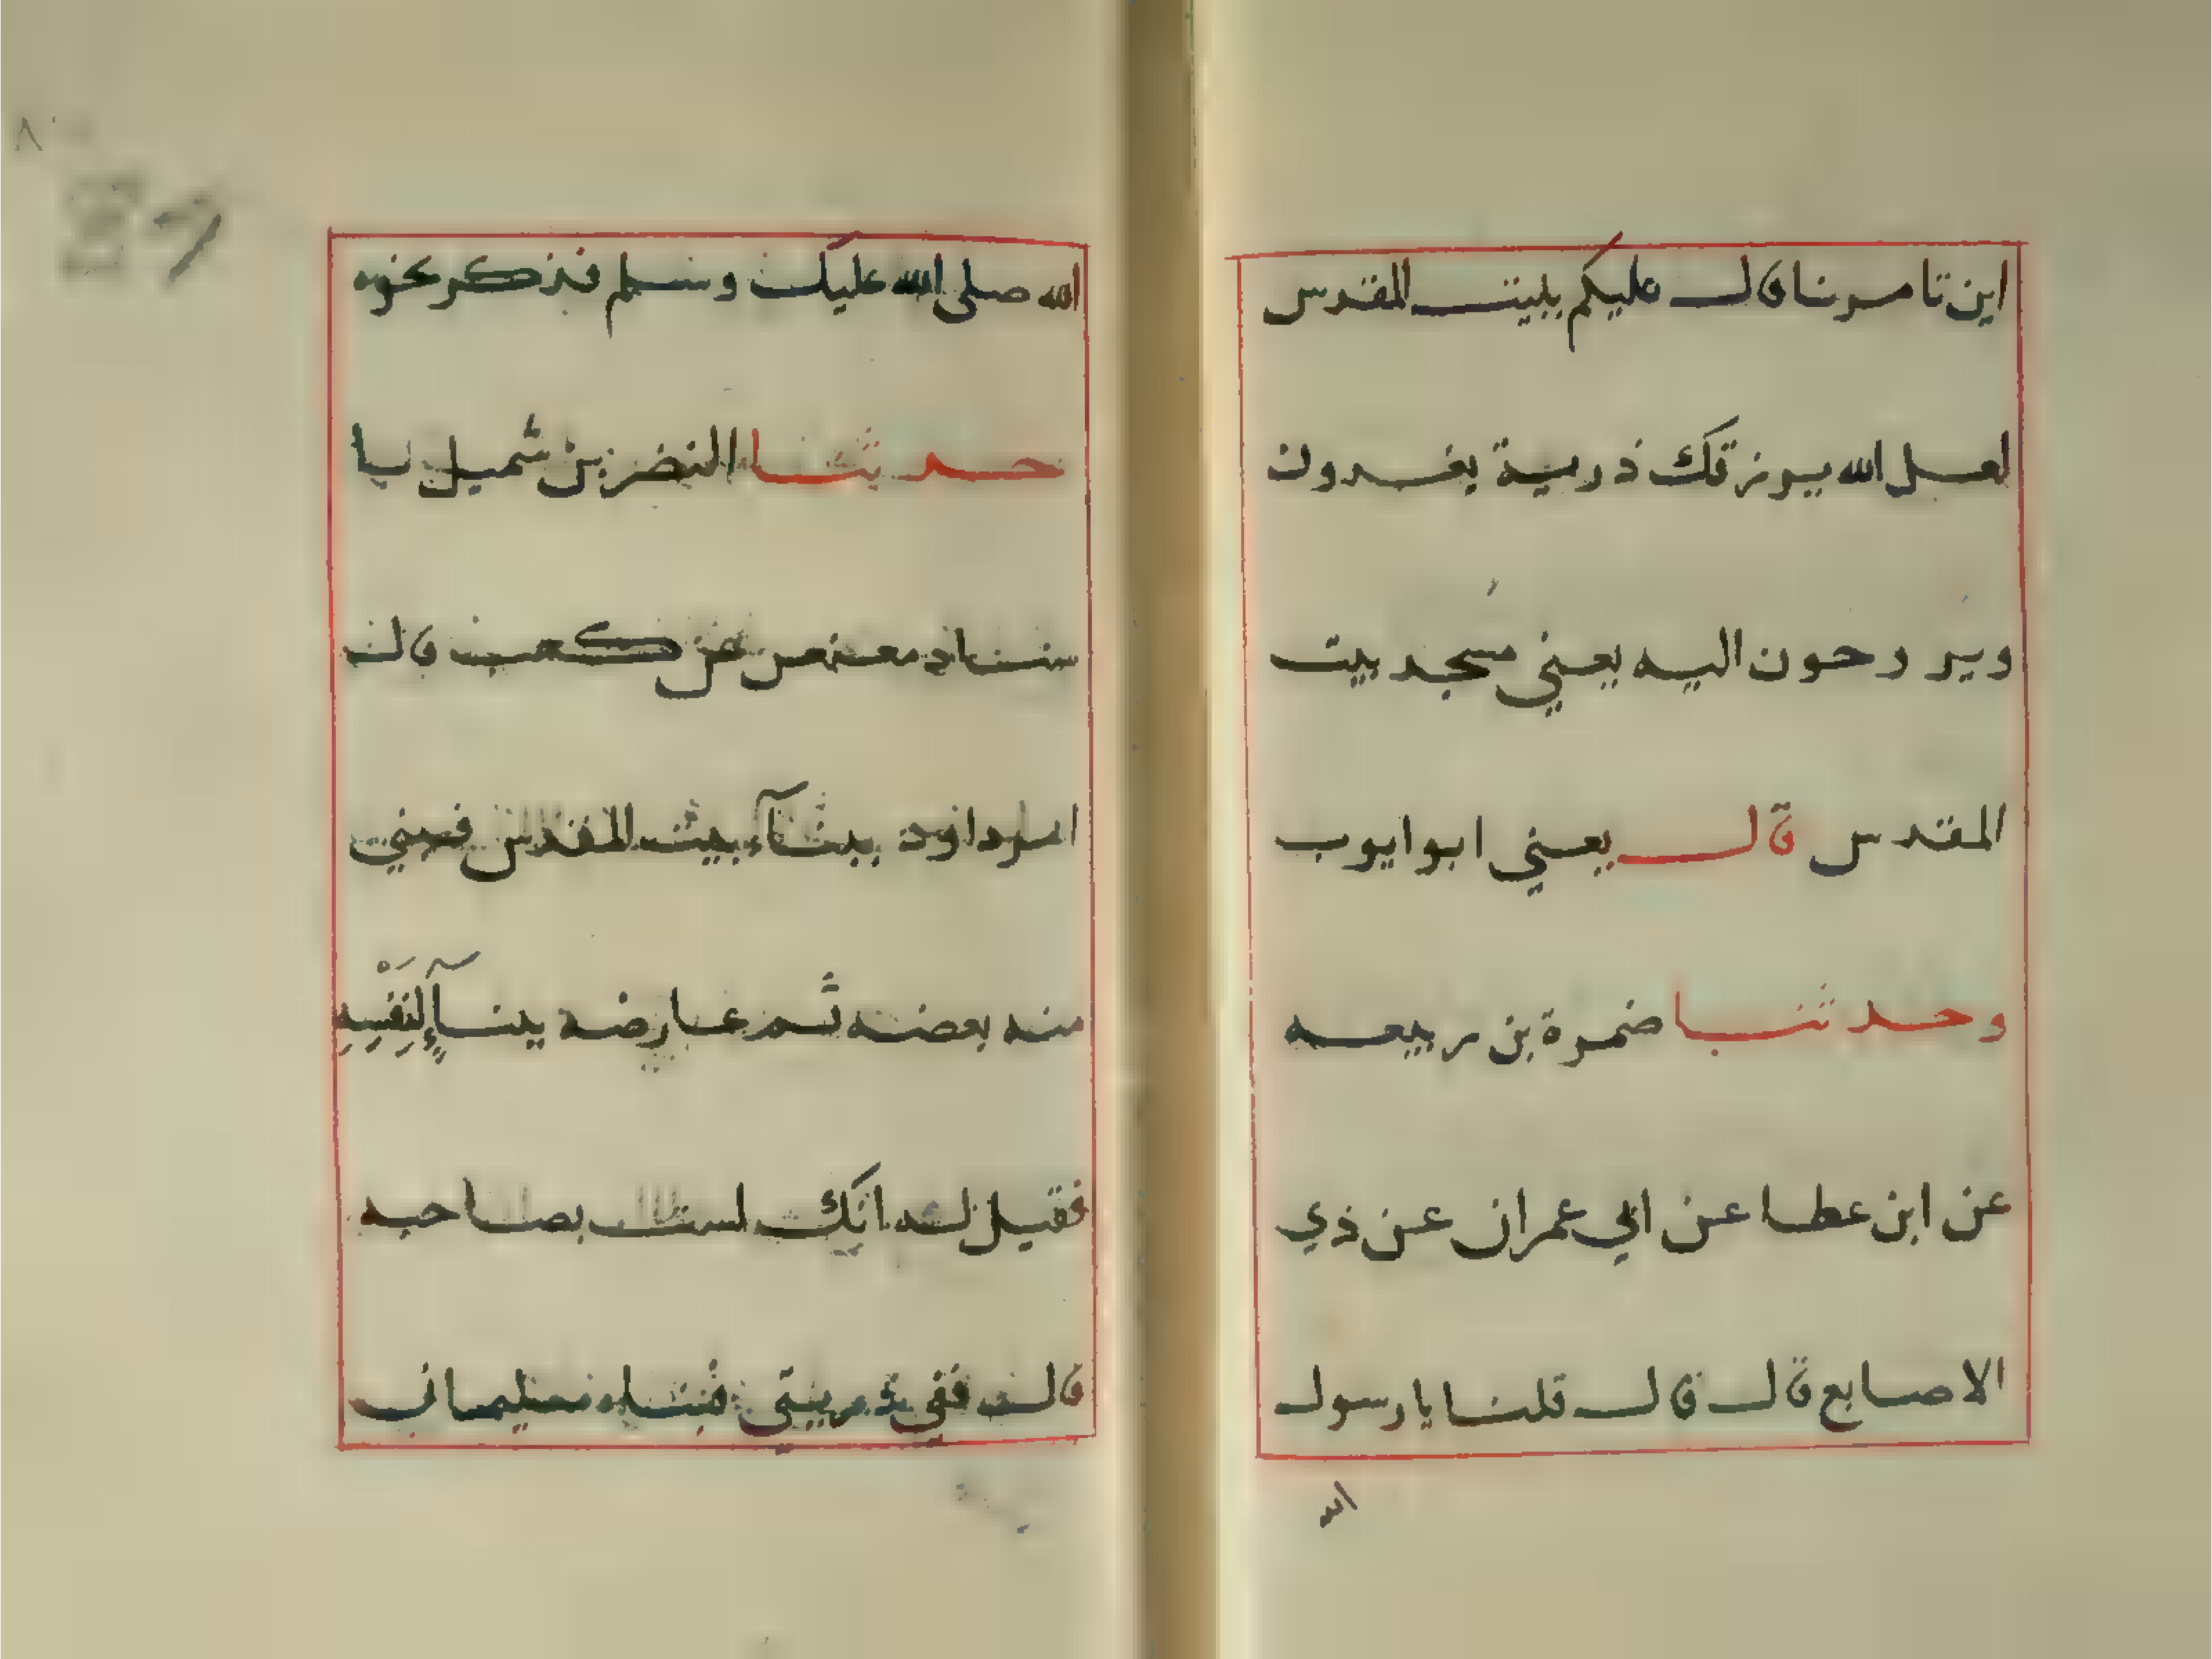 اين تامرنا قال عليكم ببيت المقدس
لعل الله يرزقك ذرية يغدون
ويروحون اليه يعني مسجد بيت
المقدس قال يعني ابو ايوب
وحدثنا ضمرة بن ربيعه
عن ابن عطا عن ابي عمران عن ذي
الاصابع قال قال قلنا يا رسول
الله
الله صلى الله عليك وسلم فذكر نحوه
حدثنا النضر بن شميل
عن كعب قال
داود بيناء بيت المقدس فبني
منه بعضه ثم عارضه بيناء لنفسه
فقيل له انك لست بصاحبه
قال ففي ذريتي